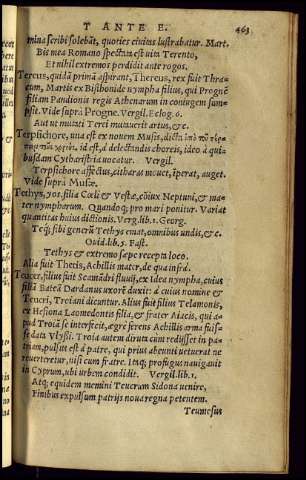 T ANTE E. 463
mina scribi solebāt, quoties ciuitas lustrabatur. Mart.
Bis mea Romano spectata est vita Terento,
Et nihil extremos perdidit ante rogos.
Tereus, quidā primā asperant, Thereus, rex fuit Thra-
cum, Martis ex Bisthonide nympha filius, qui Prognē
filiam Pandionis regis Athenarum in coniugem sum-
psit. Vide suprà Progne. Vergil. Eclog. 6.
Aut ut mutati Terei narrauerit artus, &c.
Terpsichore, vna est ex nouem Musis, dicta ἀπὸ τοῦ
id est, à delectandis choreis, ideo à qui-
busdam Cytharistria vocatur. Vergil.
Terpsichore affectus, citharas mouet, īperat, auget.
Vide suprà Musæ.
Tethys, yos. filia Cœli & Vestæ, cōiux Neptuni, & ma-
ter nympharum. Quandoq; pro mari ponitur. Variat
quantitas huius dictionis. Verg. lib. 1. Georg.
Teq; sibi generū Tethys emat, omnibus undis, &c.
Ouid. lib. 5. Fast.
Tethys & extremo sæpe recepta loco.
Alia fuit Thetis, Achillis mater, de qua infrà.
Teucer, filius fuit Scamādri fluuij, ex Idea nympha, cuius
filiā Bateā Dardanus uxorē duxit: à cuius nomine &
Teucri, Troiani dicuntur. Alius fuit filius Telamonis,
ex Hesiona Laomedontis filia, & frater Aiacis, qui a-
pud Troiā se interfecit, ægrè ferens Achillis arma fuis-
se data Vlyssi. Troia autem diruta cum redijsset in pa-
triam, pulsus est à patre, qui prius abeunti vetuerat ne
reuerteretur, nisi cum fratre. Itaq; profugus nauigauit
in Cyprum, ubi urbem condidit. Vergil. lib. 1.
Atq; equidem memini Teucrum Sidona uenire,
Finibus expulsum patrijs noua regna petentem.
Teumesus